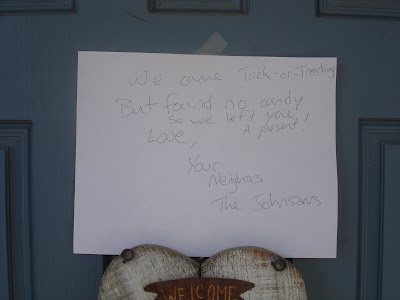 We came Trick-or-Treating
But found no candy
so we left you
A present!
Love,
Your
Neighors
The Johnsons
WELCOME